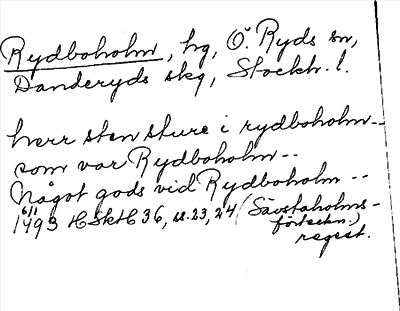 Rydboholm, hg, Ö. Ryds sn,
Danderyds skg, Stockh. l.
herr sten sture i rydboholm--
som var Rydboholm--
Något gods vid Rydboholm--
1493 6/1 HSkH 36, s. 23, 24 (Sävstaholms-
förteckn.)
regest.